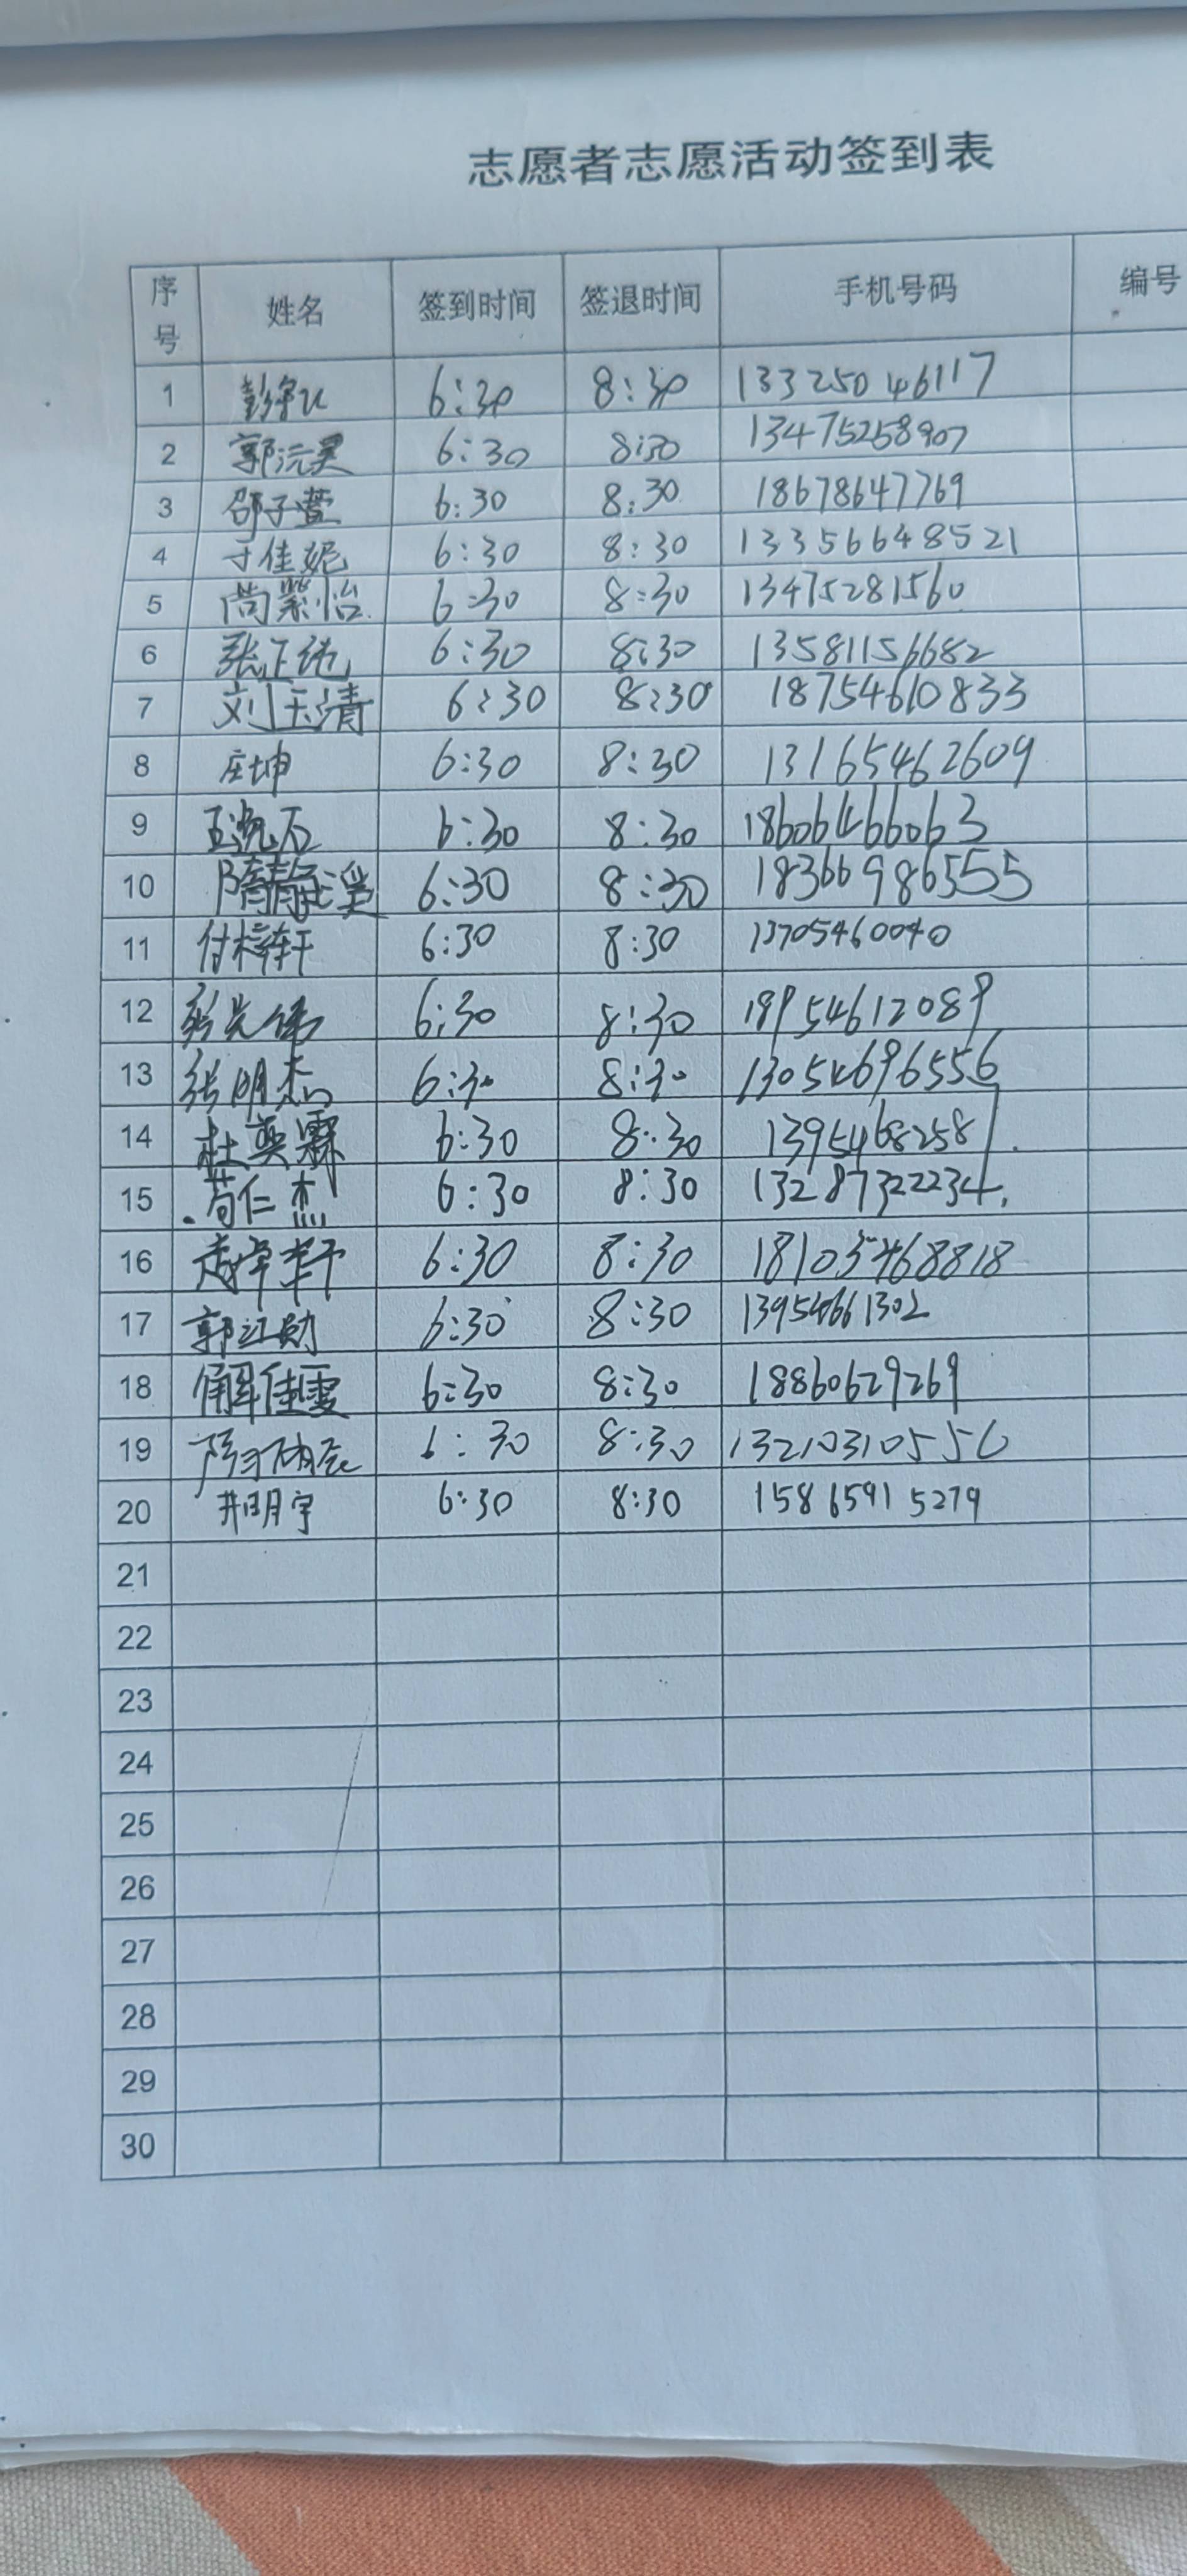 志愿者志愿活动签到表
序号 姓名 签到时间 签退时间 手机号码 编号
1 6:30 8:30 13325046117
2 郭沅昊 6:30 8:30 13475258907
3 邵子萱 6:30 8:30 18678647769
4 于佳妮 6:30 8:30 13356648521
5 尚紫怡 6:30 8:30 13475281560
6 6:30 8:30 13581156682
7 刘玉清 6:30 8:30 18754610833
8 庄坤 6:30 8:30 13165462609
9 6:30 8:30 18606466063
10 6:30 8:30 18366986555
11 付梓轩 6:30 8:30 13705460040
12 6:30 8:30 18954612089
13 张明杰 6:30 8:30 13054696556
14 杜奕霖 6:30 8:30 13954682581
15 苟仁杰 6:30 8:30 13287322234
16 6:30 8:30 18103468818
17 郭江勋 6:30 8:30 13954661302
18 解佳雯 6:30 8:30 18860629269
19 6:30 8:30 13210310556
20 井明宇 6:30 8:30 15865915279
21
22
23
24
25
26
27
28
29
30